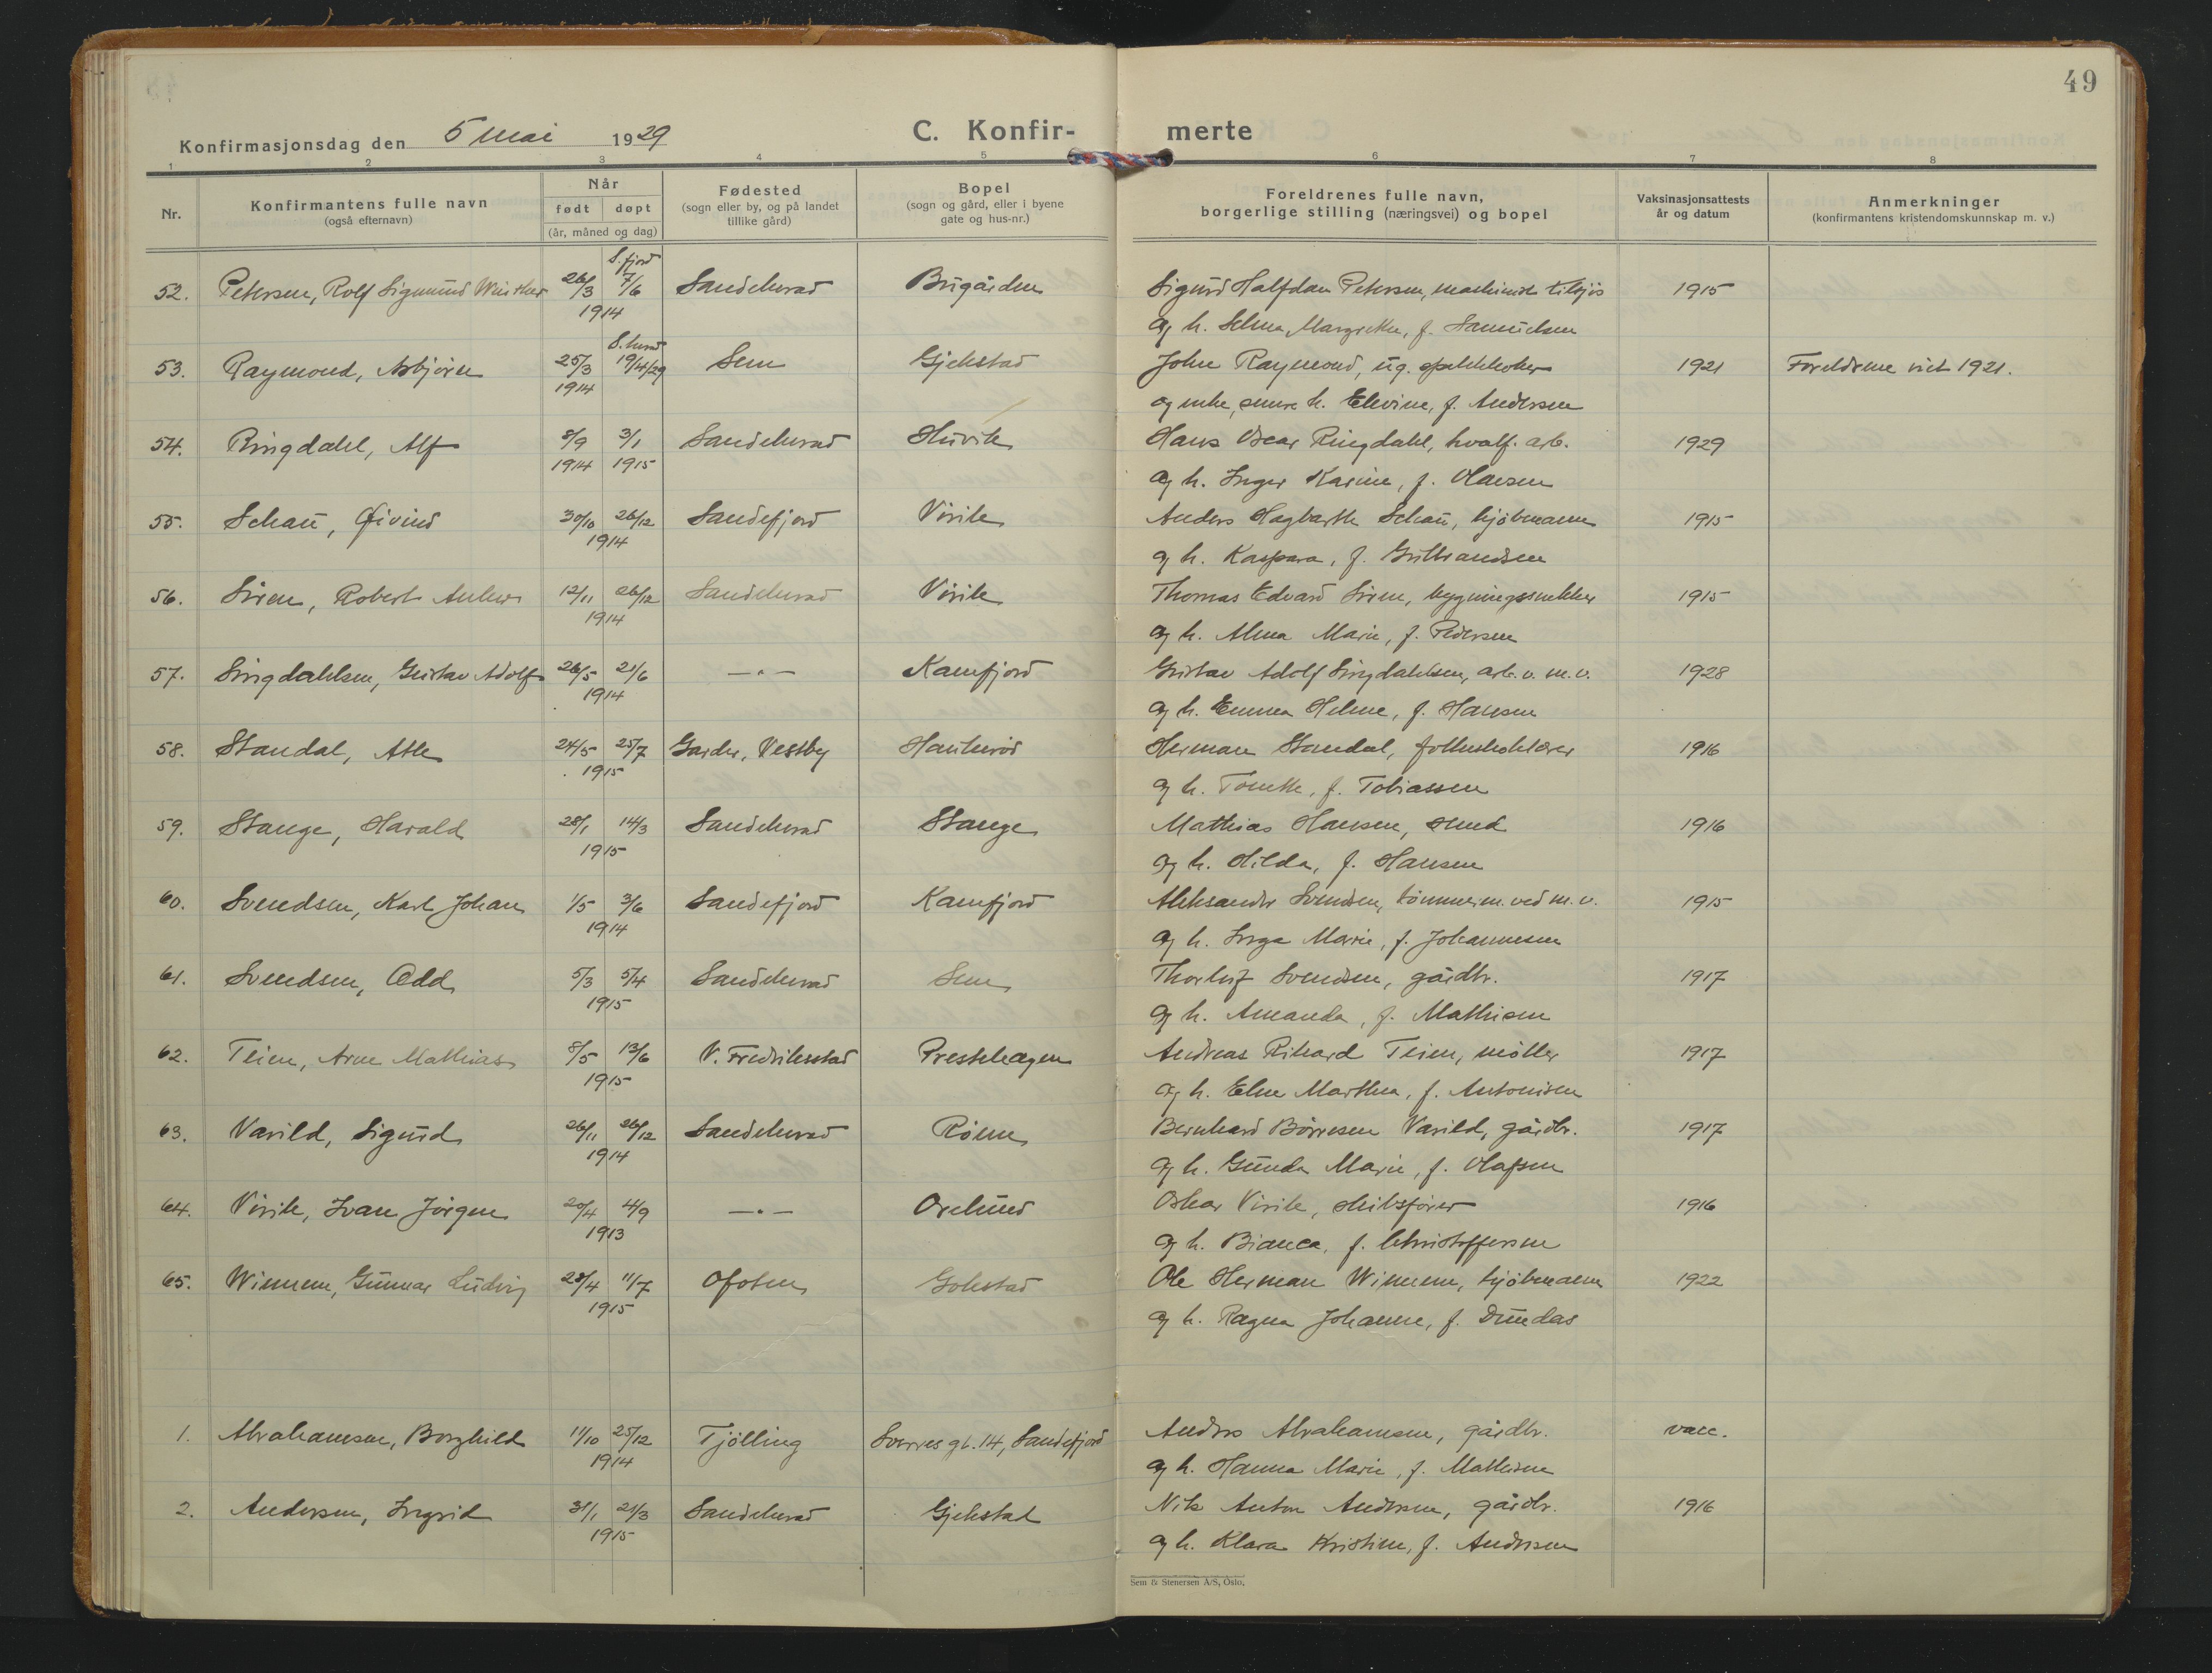 49
Konfirmasjonsdag den 5 mai 1929
C. Konfir- merte
1 2 3 4 5 6 7 8
Nr.
Konfirmantens fulle navn
(også efternavn)
Når
født døpt
(år, måned og dag)
Fødested
(sogn eller by, og på landet
tillike gård)
Bopel
(sogn og gård, eller i byene
gate og hus-nr.)
Foreldrenes fulle navn,
borgerlige stilling (næringsvei) og bopel
Vaksinasjonsattests
år og datum
Anmerkninger
(konfirmantens kristendomskunnskap m. v.)
S.fjord
52. Petersen, Rolf Sigmund 26/3 7/6 Sandeherad Bugården Sigurd Halfdan Petersen, maskinist tilsjøs 1915
1914 og h. Selma Margrethe, f. Samuelsen
S.herad
53. Raymond, Asbjørn 25/3 19/4/29 Sem Gjekstad John Raymond, ug. spekkkoker 1921 Foreldrene viet 1921.
1914 og enke, senere h. Elevine, f. Andersen
54. Ringdahl, Alf 8/9 3/1 Sandeherad Huvik Hans Oscar Ringdahl, hvalf. arb. 1929
1914 1915 og h. Inger Karine, f. Olavsen
55. Schau, Øivind 30/10 26/12 Sandefjord Virik Anders Hagbarth Schau, kjøbmann 1915
1914 og h. Kaspara, f. Gulbrandsen
56. Siren, Robert Anker 12/11 26/12 Sandeherad Virik Thomas Edvard Siren, bygningssnekker 1915
1914 og h. Alma Marie, f. Pedersen
57. Singdahlsen, Gustav Adolf 26/5 21/6 —"— Kamfjord Gustav Adolf Singdahlsen, arb. v. m. v. 1928
1914 og h. Emma Helene, f. Hansen
58. Standal, Atle 24/5 25/7 Garder, Vestby Haukerød Herman Standal, folkeskolelærer 1916
1915 og h. Tomthe, f. Tobiassen
59. Stange, Harald 28/1 14/3 Sandeherad Stange Mathias Hansen, smed 1916
1915 og h. Hilda, f. Hansen
60. Svendsen, Karl Johan 1/5 3/6 Sandefjord Kamfjord Aleksander Svendsen, tømmerm. ved m. v. 1915
1914 og h. Inga Marie, f. Johannesen
61. Svendsen, Odd 5/3 5/4 Sandeherad Sem Thorleif Svendsen, gårdbr. 1917
1915 og h. Amanda, f. Mathisen
62. Teien, Arne Mathias 8/5 13/6 V. Fredrikstad Prestehagen Andreas Rikard Teien, møller 1917
1915 og h. Elne Marthea, f. Antonisen
63. Varild, Sigurd 26/11 26/12 Sandeherad Råene Bernhard Børresen Varild, gårdbr. 1917
1914 og h. Gunda Marie, f. Olafsen
64. Virik, Ivan Jørgen 20/4 4/9 —"— Orelund Oskar Virik, skibsfører 1916
1913 og h. Bianca, f. Christoffersen
65. Winnem, Gunnar Ludvig 28/4 11/7 Ofoten Gokstad Ole Herman Winnem, kjøbmann 1922
1915 og h. Ragna Johanne, f. Dundas
1. Abrahamsen, Borghild 11/10 25/12 Tjölling Sverres gt. 14, Sandefjord Anders Abrahamsen, gårdbr. vacc.
1914 og h. Hanna Marie, f. Mathisen
2. Andersen, Ingrid 31/1 21/3 Sandeherad Gjekstad Nils Anton Andersen, gårdbr. 1916
1915 og h. Klara Kristine, f. Andersen
Sem & Stenersen A/S, Oslo.